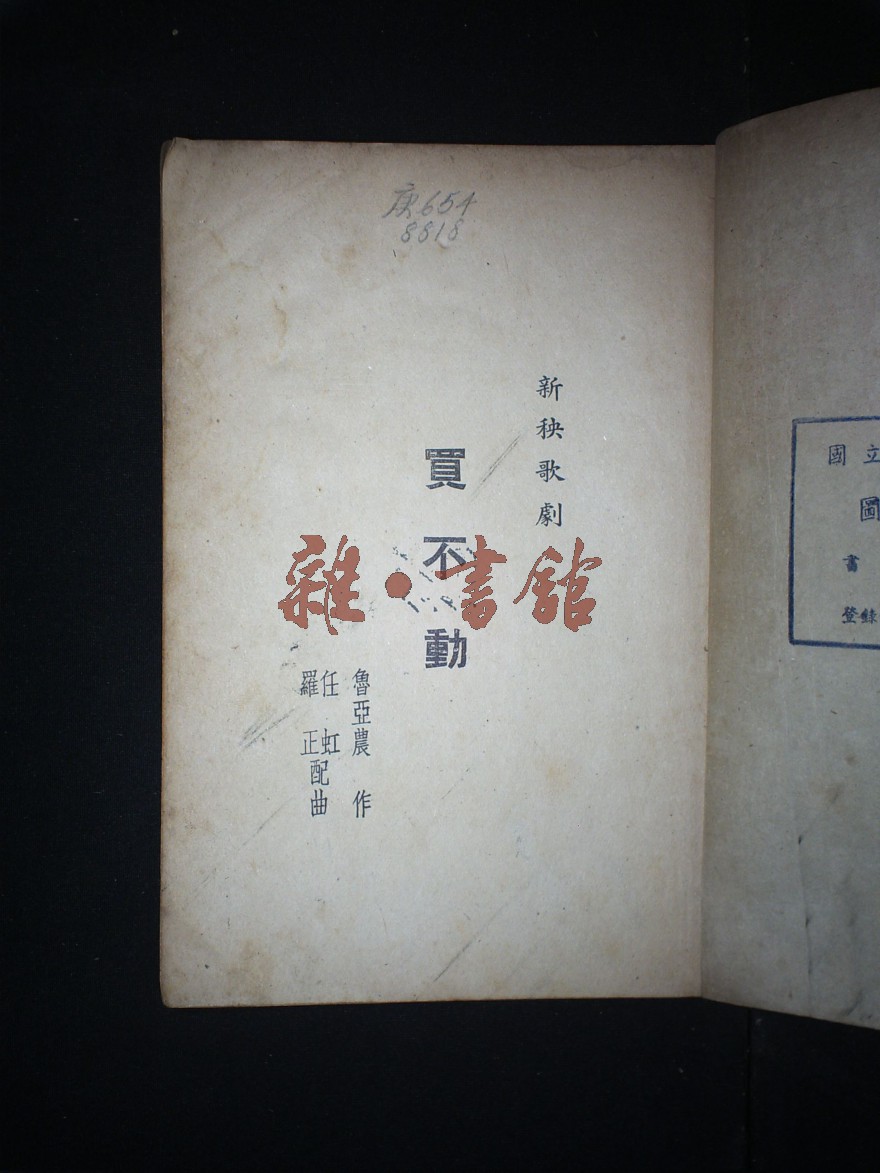 庚654
8818
新秧歌劇
買不動
魯亞農 作
任 虹
羅 正
配曲
雜·書館
國立
圖
書
登錄